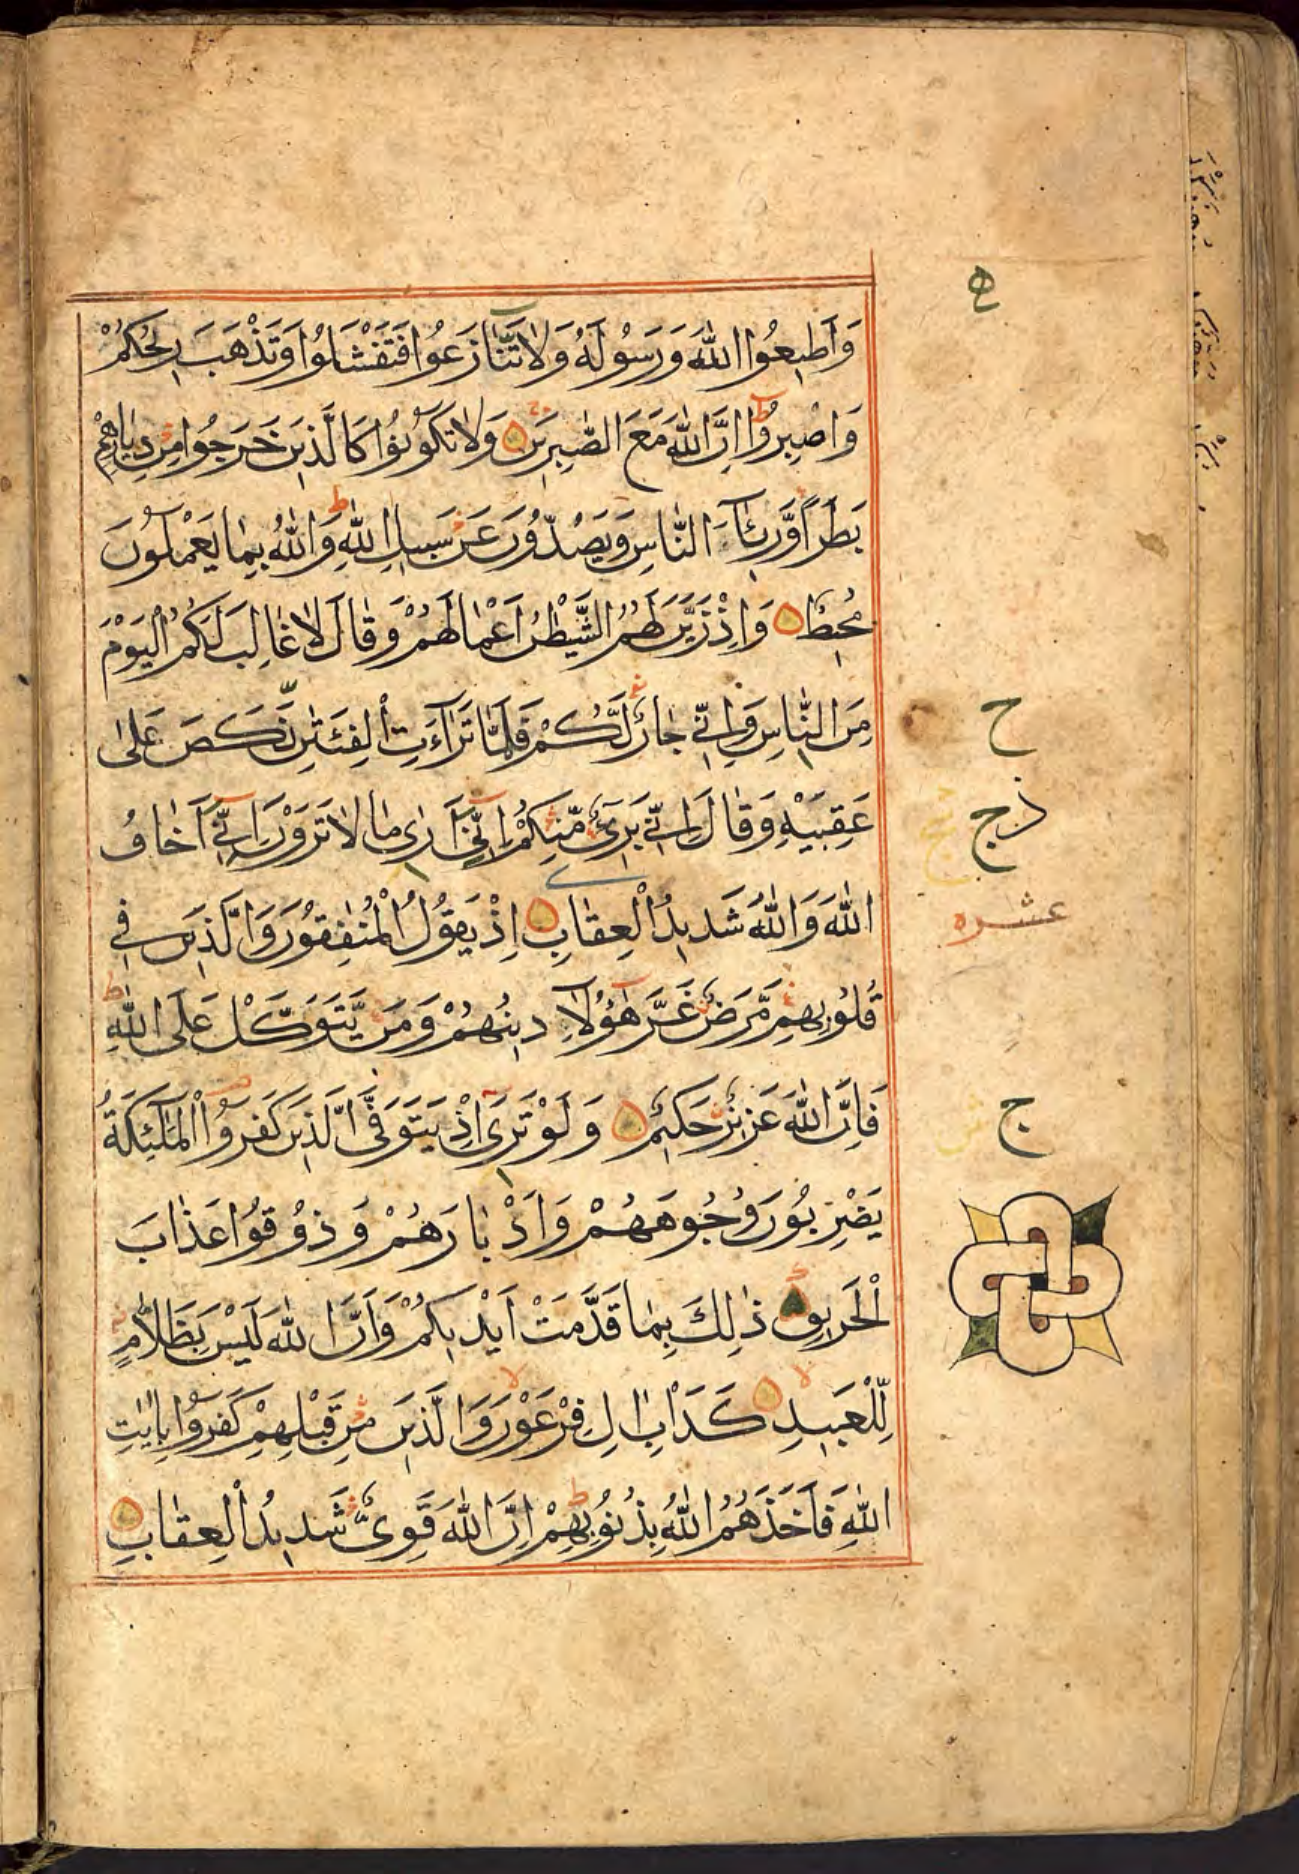 وَاَطِيعُوا اللّٰهَ وَرَسُولَهُ وَلَا تَنَازَعُوا فَتَفْشَلُوا وَتَذْهَبَ رِيحُكُمْ
وَاصْبِرُوا اِنَّ اللّٰهَ مَعَ الصّٰبِرِينَ وَلَا تَكُونُوا كَالَّذِينَ خَرَجُوا مِنْ دِيَارِهِمْ
بَطَرًا وَّرِئَآءَ النَّاسِ وَيَصُدُّونَ عَنْ سَبِيلِ اللّٰهِ ط وَاللّٰهُ بِمَا يَعْمَلُونَ
مُحِيطٌ وَاِذْ زَيَّنَ لَهُمُ الشَّيْطٰنُ اَعْمَالَهُمْ وَقَالَ لَا غَالِبَ لَكُمُ الْيَوْمَ
مِنَ النَّاسِ وَاِنِّي جَارٌ لَّكُمْ فَلَمَّا تَرَآءَتِ الْفِئَتٰنِ نَكَصَ عَلٰى
عَقِبَيْهِ وَقَالَ اِنِّي بَرِيٓءٌ مِّنْكُمْ اِنِّيٓ اَرٰى مَا لَا تَرَوْنَ اِنِّيٓ اَخَافُ
اللّٰهَ وَاللّٰهُ شَدِيدُ الْعِقَابِ اِذْ يَقُولُ الْمُنٰفِقُونَ وَالَّذِينَ فِي
قُلُوبِهِمْ مَّرَضٌ غَرَّ هٰٓؤُلَآءِ دِينُهُمْ وَمَنْ يَّتَوَكَّلْ عَلَى اللّٰهِ ط
فَاِنَّ اللّٰهَ عَزِيزٌ حَكِيمٌ وَلَوْ تَرٰٓى اِذْ يَتَوَفَّى الَّذِينَ كَفَرُوا الْمَلٰٓئِكَةُ
يَضْرِبُونَ وُجُوهَهُمْ وَاَدْبَارَهُمْ وَذُوقُوا عَذَابَ
الْحَرِيقِ ذٰلِكَ بِمَا قَدَّمَتْ اَيْدِيكُمْ وَاَنَّ اللّٰهَ لَيْسَ بِظَلَّامٍ
لِّلْعَبِيدِ كَدَاْبِ اٰلِ فِرْعَوْنَ وَالَّذِينَ مِنْ قَبْلِهِمْ كَفَرُوا بِاٰيٰتِ
اللّٰهِ فَاَخَذَهُمُ اللّٰهُ بِذُنُوبِهِمْ اِنَّ اللّٰهَ قَوِيٌّ شَدِيدُ الْعِقَابِ
ح
ج
عشره
ج